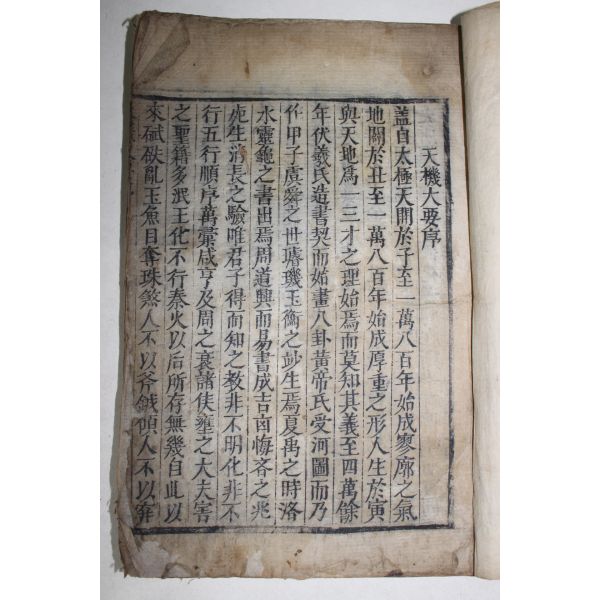 天機大要序
盖自太極天開於子至一萬八百年始成寥廓之氣
地闢於丑至一萬八百年始成厚重之形人生於寅
與天地爲一三才之理始焉而莫知其義至四萬餘
年伏羲氏造書契而始畫八卦黃帝氏受河圖而乃
作甲子虞舜之世璿璣玉衡之妙生焉夏禹之時洛
水靈龜之書出焉周道興而易書成吉凶悔吝之兆
死生消長之驗唯君子得而知之敎非不明化非不
行五行順序萬彙咸亨及周之衰諸侯壅之大夫害
之聖籍多泯王化不行秦火以后所存無幾自此以
來碔砆亂玉魚目奪珠煞人不以斧鉞頭人不以穽